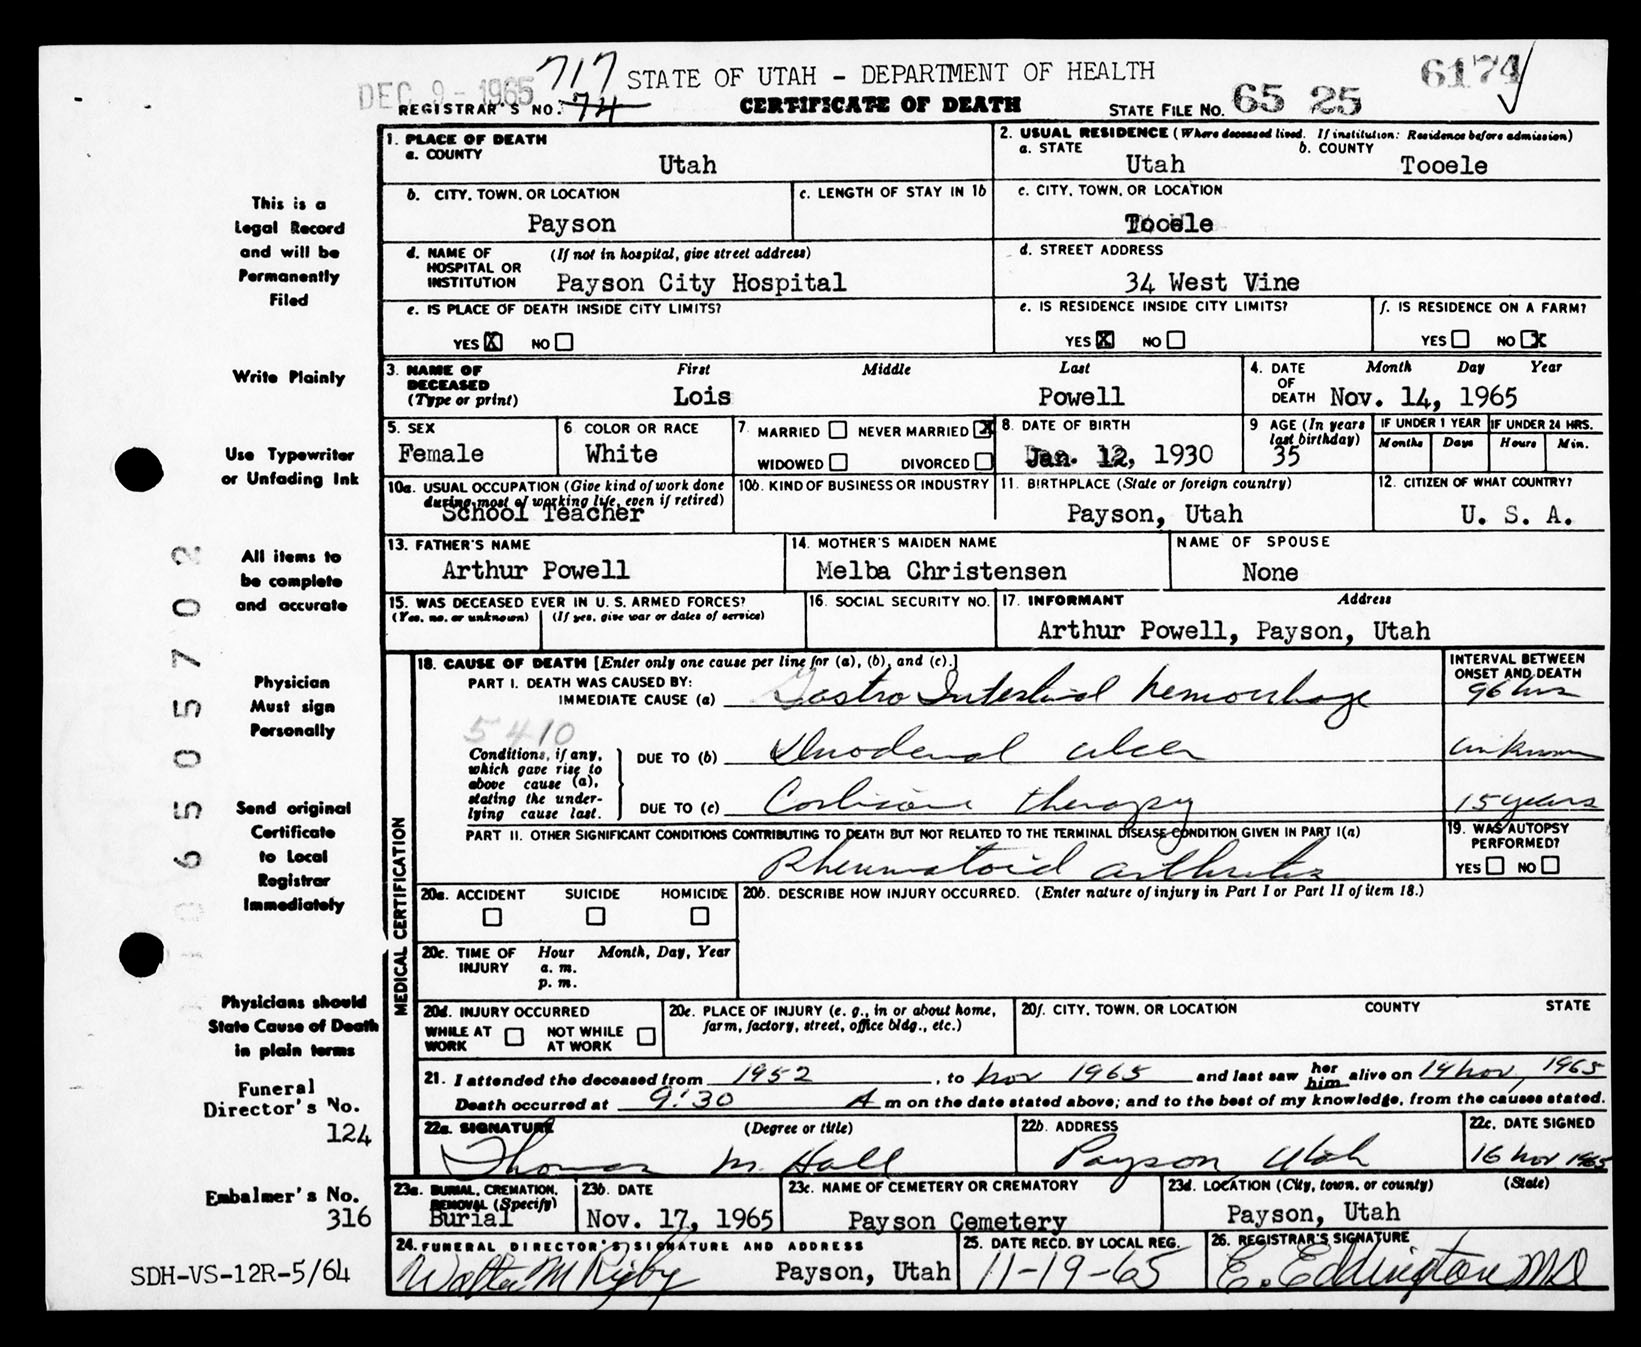 DEC 9 - 1965
717
STATE OF UTAH - DEPARTMENT OF HEALTH
6174
REGISTRAR'S NO. 74
CERTIFICATE OF DEATH
STATE FILE NO. 65 25
This is a
Legal Record
and will be
Permanently
Filed
Write Plainly
Use Typewriter
or Unfading Ink
All items to
be complete
and accurate
Physician
Must sign
Personally
Send original
Certificate
to Local
Registrar
Immediately
Physicians should
State Cause of Death
in plain terms
Funeral
Director's No.
124
Embalmer's No.
316
SDH-VS-12R-5/64
06505702
1. PLACE OF DEATH
a. COUNTY
Utah
2. USUAL RESIDENCE (Where deceased lived. If institution: Residence before admission)
a. STATE
Utah
b. COUNTY
Tooele
b. CITY, TOWN, OR LOCATION
Payson
c. LENGTH OF STAY IN 1b
c. CITY, TOWN, OR LOCATION
Tooele
d. NAME OF HOSPITAL OR INSTITUTION
(If not in hospital, give street address)
Payson City Hospital
d. STREET ADDRESS
34 West Vine
e. IS PLACE OF DEATH INSIDE CITY LIMITS?
YES X NO
e. IS RESIDENCE INSIDE CITY LIMITS?
YES X NO
f. IS RESIDENCE ON A FARM?
YES NO X
3. NAME OF DECEASED (Type or print)
First Middle Last
Lois Powell
4. DATE OF DEATH
Month Day Year
Nov. 14, 1965
5. SEX
Female
6 COLOR OR RACE
White
7. MARRIED NEVER MARRIED X
WIDOWED DIVORCED
8. DATE OF BIRTH
Jan. 12, 1930
9 AGE (In years last birthday)
35
IF UNDER 1 YEAR
Months Days
IF UNDER 24 HRS.
Hours Min.
10a. USUAL OCCUPATION (Give kind of work done
during most of working life, even if retired)
School Teacher
10b. KIND OF BUSINESS OR INDUSTRY
11. BIRTHPLACE (State or foreign country)
Payson, Utah
12. CITIZEN OF WHAT COUNTRY?
U. S. A.
13. FATHER'S NAME
Arthur Powell
14. MOTHER'S MAIDEN NAME
Melba Christensen
NAME OF SPOUSE
None
15. WAS DECEASED EVER IN U. S. ARMED FORCES?
(Yes, no, or unknown) (If yes, give war or dates of service)
16. SOCIAL SECURITY NO.
17. INFORMANT Address
Arthur Powell, Payson, Utah
MEDICAL CERTIFICATION
18. CAUSE OF DEATH [Enter only one cause per line for (a), (b), and (c).]
INTERVAL BETWEEN
ONSET AND DEATH
PART I. DEATH WAS CAUSED BY:
IMMEDIATE CAUSE (a) Gastro Intestinal hemorrhage
96 hrs
5410
Conditions, if any,
which gave rise to
above cause (a),
stating the under-
lying cause last.
DUE TO (b) Duodenal ulcer
unknown
DUE TO (c) Cortisone therapy
15 years
PART II. OTHER SIGNIFICANT CONDITIONS CONTRIBUTING TO DEATH BUT NOT RELATED TO THE TERMINAL DISEASE CONDITION GIVEN IN PART I(a)
Rheumatoid arthritis
19. WAS AUTOPSY
PERFORMED?
YES NO
20a. ACCIDENT SUICIDE HOMICIDE
20b. DESCRIBE HOW INJURY OCCURRED. (Enter nature of injury in Part I or Part II of item 18.)
20c. TIME OF INJURY
Hour Month, Day, Year
a. m.
p. m.
20d. INJURY OCCURRED
WHILE AT WORK NOT WHILE AT WORK
20e. PLACE OF INJURY (e. g., in or about home,
farm, factory, street, office bldg., etc.)
20f. CITY, TOWN, OR LOCATION COUNTY STATE
21. I attended the deceased from 1952, to Nov 1965 and last saw her him alive on 14 Nov, 1965
Death occurred at 9:30 A m on the date stated above; and to the best of my knowledge, from the causes stated.
22a. SIGNATURE (Degree or title)
Thomas M. Hall
22b. ADDRESS
Payson Utah
22c. DATE SIGNED
16 Nov 1965
23a. BURIAL, CREMATION, REMOVAL (Specify)
Burial
23b. DATE
Nov. 17, 1965
23c. NAME OF CEMETERY OR CREMATORY
Payson Cemetery
23d. LOCATION (City, town, or county) (State)
Payson, Utah
24. FUNERAL DIRECTOR'S SIGNATURE AND ADDRESS
Walter M Rigby Payson, Utah
25. DATE RECD. BY LOCAL REG.
11-19-65
26. REGISTRAR'S SIGNATURE
E. Eddington MD